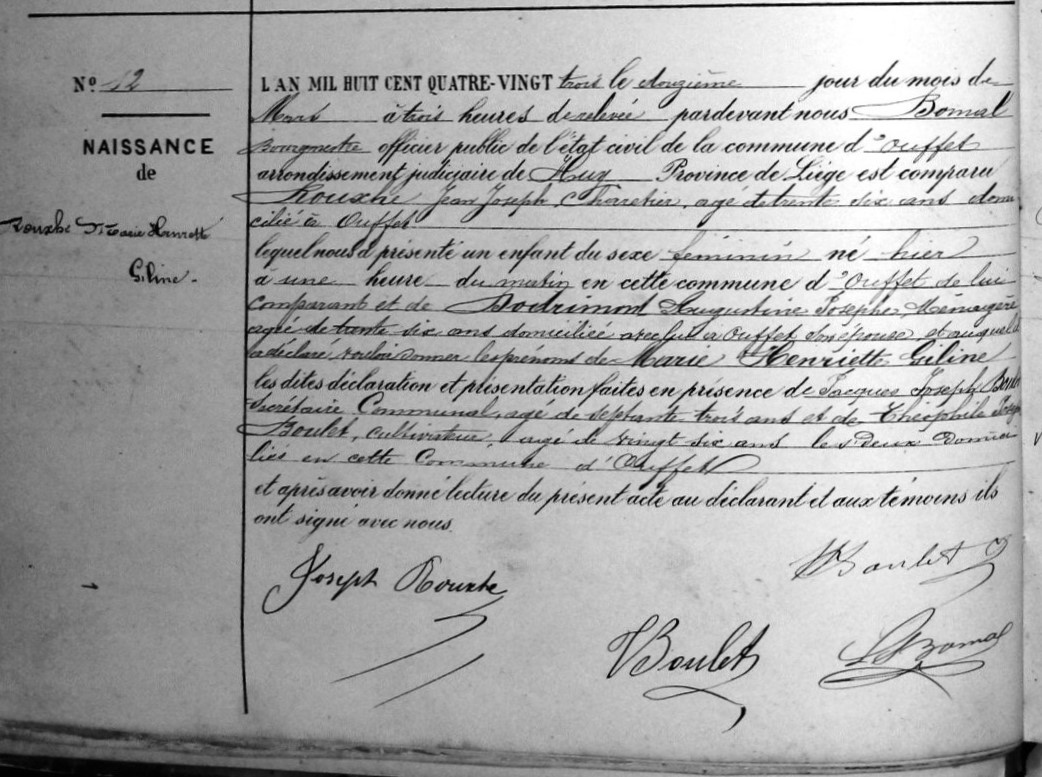 Nº 12
NAISSANCE
de
Rouxhe Marie Henriette
Giline.
L'AN MIL HUIT CENT QUATRE-VINGT trois le douzième jour du mois de
Mars à trois heures de relevée pardevant nous Bomal
Bourgmestre officier public de l'état civil de la commune d'Ouffet
arrondissement judiciaire de Huy Province de Liège est comparu
Rouxhe Jean Joseph, Charretier, agé de trente six ans domi
cilié à Ouffet
lequel nous a présenté un enfant du sexe féminin né hier
à une heure du matin en cette commune d'Ouffet de lui
comparant et de Dodrimont Augustine Josephe, Ménagère
agée de trente six ans domiciliée avec lui à Ouffet son épouse, et auquel il
a déclaré vouloir donner les prénoms de Marie Henriette Giline
les dites déclaration et présentation faites en présence de Jacques Joseph
Secrétaire Communal, agé de septante trois ans et de Théophile
Boulet, cultivateur, agé de vingt six ans les deux domici
liés en cette Commune d'Ouffet
et après avoir donné lecture du présent acte au déclarant et aux témoins ils
ont signé avec nous.
Joseph Rouxhe
Boulet
Boulet
Bomal